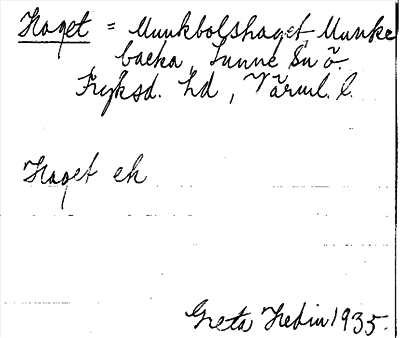 Haget = Munkbolshaget Munke
backa, Sunne sn ö.
Fryksd. hd, Värml. l.
Haget ek
Greta Hedin 1935.